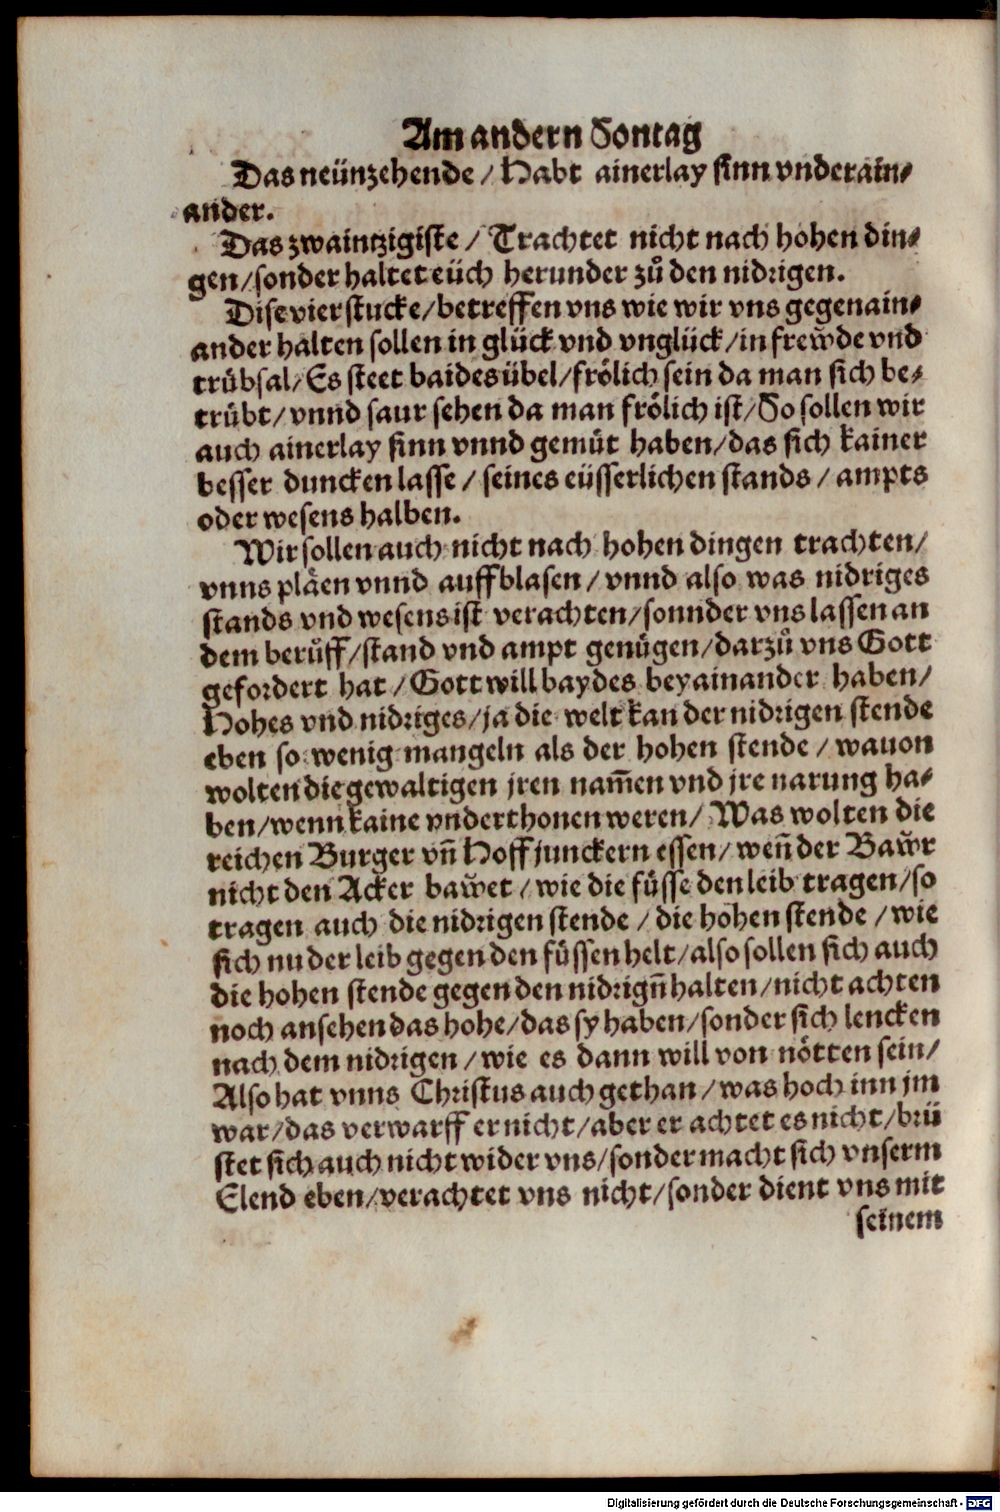 Am andern Sontag
Das neünzehende / Habt ainerlay sinn vnderain⸗
ander.
Das zwaintzigiste / Trachtet nicht nach hohen din⸗
gen / sonder haltet eüch herunder zů den nidrigen.
Dise vier stucke / betreffen vns wie wir vns gegenain⸗
ander halten sollen in glück vnd vnglück / in frew̆de vnd
trůbsal / Es steet baides übel / frölich sein da man sich be⸗
trůbt / vnnd saur sehen da man frölich ist / So sollen wir
auch ainerlay sinn vnnd gemüt haben / das sich kainer
besser duncken lasse / seines eüsserlichen stands / ampts
oder wesens halben.
Wir sollen auch nicht nach hohen dingen trachten /
vnns pläen vnnd auffblasen / vnnd also was nidriges
stands vnd wesens ist verachten / sonnder vns lassen an
dem berůff / stand vnd ampt genügen / darzů vns Gott
gefordert hat / Gott will baydes beyainander haben /
Hohes vnd nidriges / ja die welt kan der nidrigen stende
eben so wenig mangeln als der hohen stende / wauon
wolten die gewaltigen jren nam̄en vnd jre narung ha⸗
ben / wenn kaine vnderthonen weren / Was wolten die
reichen Burger vn̄ Hoffjunckern essen / wen̄ der Baw̆r
nicht den Acker baw̆et / wie die füsse den leib tragen / so
tragen auch die nidrigen stende / die hohen stende / wie
sich nu der leib gegen den füssen helt / also sollen sich auch
die hohen stende gegen den nidrign̄ halten / nicht achten
noch ansehen das hohe / das sy haben / sonder sich lencken
nach dem nidrigen / wie es dann will von nötten sein /
Also hat vnns Christus auch gethan / was hoch inn jm
war / das verwarff er nicht / aber er achtet es nicht / brü
stet sich auch nicht wider vns / sonder macht sich vnserm
Elend eben / verachtet vns nicht / sonder dient vns mit
seinem
Digitalisierung gefördert durch die Deutsche Forschungsgemeinschaft - DFG